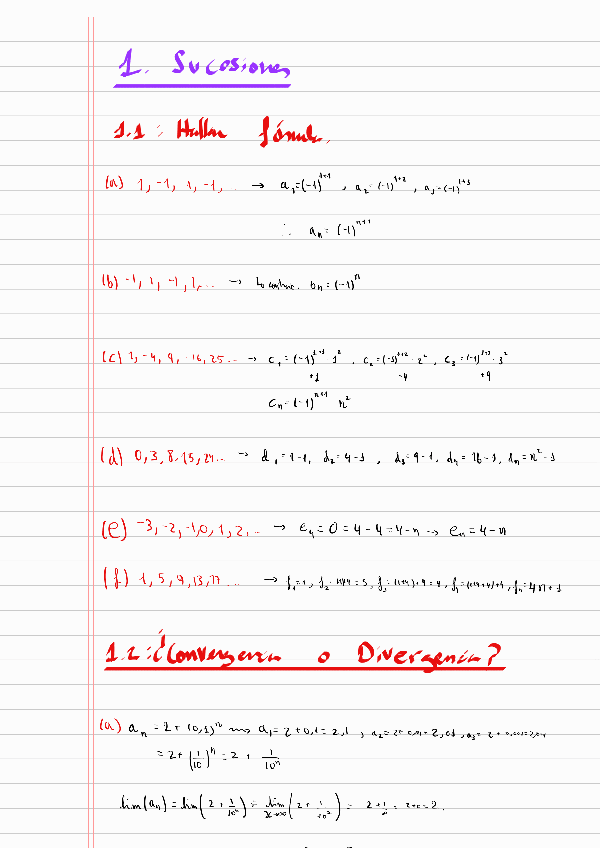 1. Sucesiones
1.1: Hallar fórmula.
(a) 1, -1, 1, -1, ... → a₁=(-1)¹⁺¹, a₂=(-1)¹⁺², a₃=(-1)¹⁺³
∴ aₙ = (-1)ⁿ⁺¹
(b) -1, 1, -1, 1, ... → bₙ=(-1)ⁿ
(c) 1, -4, 9, -16, 25... → c₁=(-1)¹⁺¹ 1², c₂=(-1)¹⁺²·2², c₃=(-1)¹⁺³·3²
+1 -4 +9
cₙ=(-1)ⁿ⁺¹ n²
(d) 0, 3, 8, 15, 24... → d₁=1-1, d₂=4-1, d₃=9-1, d₄=16-1, dₙ=n²-1
(e) -3, -2, -1, 0, 1, 2, ... → e₄=0=4-4=4-n → eₙ=4-n
(f) 1, 5, 9, 13, 17 ... → f₁=1, f₂=1+4=5, f₃=(1+4)+4=9, fₙ=4n+1
1.2: ¿Convergencia o Divergencia?
(a) aₙ = 2+(0,1)ⁿ a₁=2+0,1=2,1, a₂=2+0,01=2,01, a₃=2+0,001=2,001
= 2+(1/10)ⁿ = 2 + 1/10ⁿ
lim(aₙ)=lim(2+1/10ⁿ)= lim x→∞ (2+1/10ⁿ) = 2+1/∞ = 2+0=2.